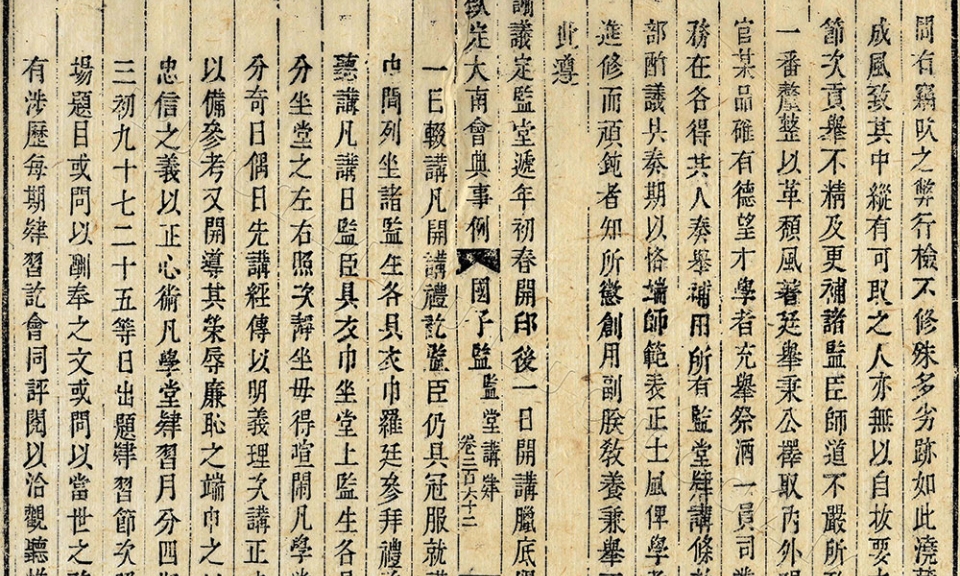 間有竊吹之弊行檢不修殊多劣跡如此澆
成風致其中縱有可取之人亦無以自拔要
節次貢舉不精及更補諸監臣師道不嚴所
一番釐整以革頹風著廷舉秉公擇取內外
官某品確有德望才學者充舉祭酒一員司
務在各得其人奏舉補用所有監堂肄講條
部酌議具奏期以恪端師範表正士風俾學
進修而頑鈍者知所懲創用副朕敎養兼舉
此遵
議定監堂遞年初春開印後一日開講臘底
欽定大南會典事例 國子監 監堂講肄 卷二百六十二
一日輟講凡開講禮訖監臣仍具冠服就
中間列坐諸監生各具衣巾羅廷參拜禮
聽講凡講日監臣具衣巾坐堂上監生各
分坐堂之左右照次講坐毋得喧鬧凡學
分奇日偶日先講經傳以明義理次講正
以備參考又開導其榮辱廉恥之端巾之
忠信之義以正心術凡學堂肄習月分四
三初九十七二十五等日出題肄習節次
場題目或問以酬奉之文或問以當世之
有涉歷每期肄習訖會同評閱以洽觀聽